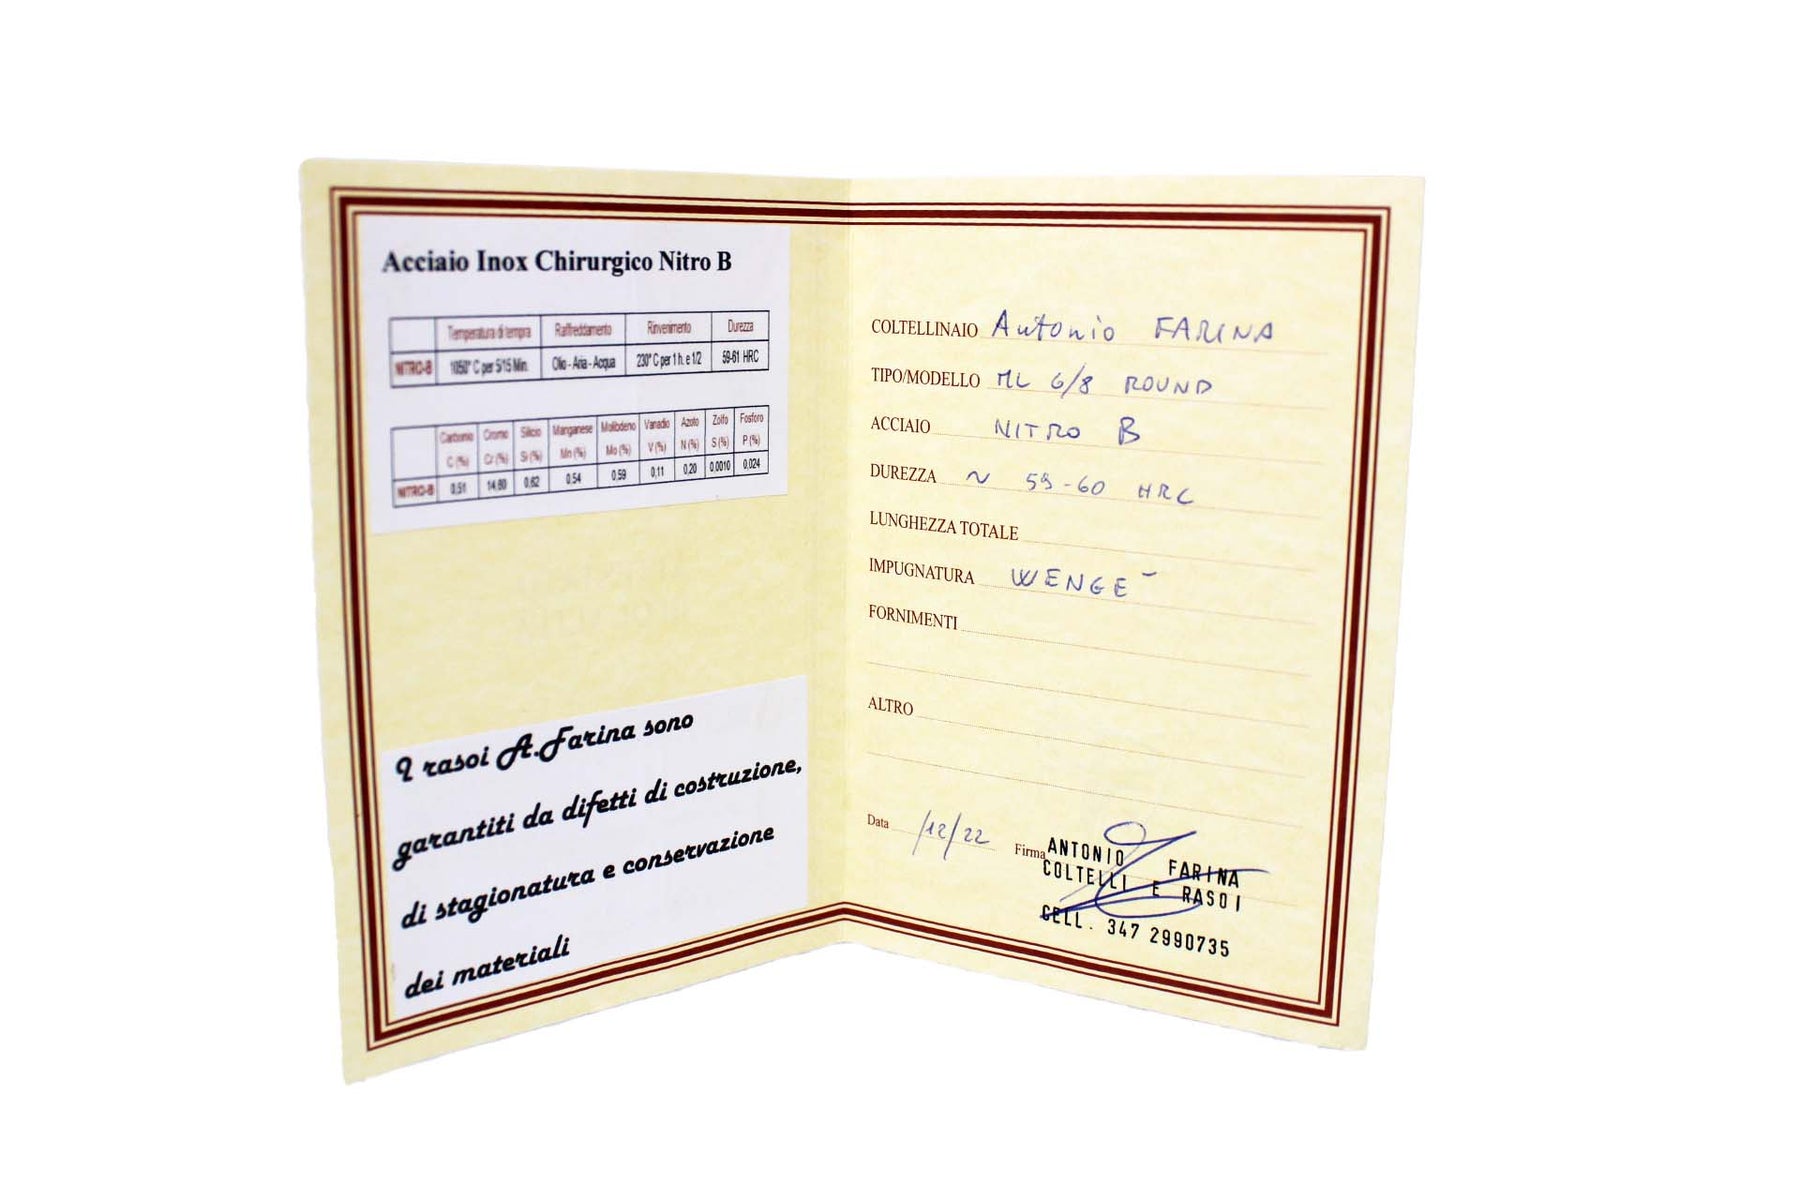 Acciaio Inox Chirurgico Nitro B
Temperatura di tempra Raffreddamento Rinvenimento Durezza
NITRO-B 1050° C per 5/15 Min. Olio - Aria - Acqua 230° C per 1 h. e 1/2 59-61 HRC
Carbonio Cromo Silicio Manganese Molibdeno Vanadio Azoto Zolfo Fosforo
C (%) Cr (%) Si (%) Mn (%) Mo (%) V (%) N (%) S (%) P (%)
NITRO-B 0,51 14,80 0,62 0.54 0,59 0,11 0,20 0,0010 0,024
I rasoi A.Farina sono
garantiti da difetti di costruzione,
di stagionatura e conservazione
dei materiali
COLTELLINAIO Antonio FARINA
TIPO/MODELLO ML 6/8 ROUND
ACCIAIO NITRO B
DUREZZA ~ 59-60 HRC
LUNGHEZZA TOTALE
IMPUGNATURA WENGE-
FORNIMENTI
ALTRO
Data /12/22 Firma
ANTONIO FARINA
COLTELLI E RASOI
CELL. 347 2990735